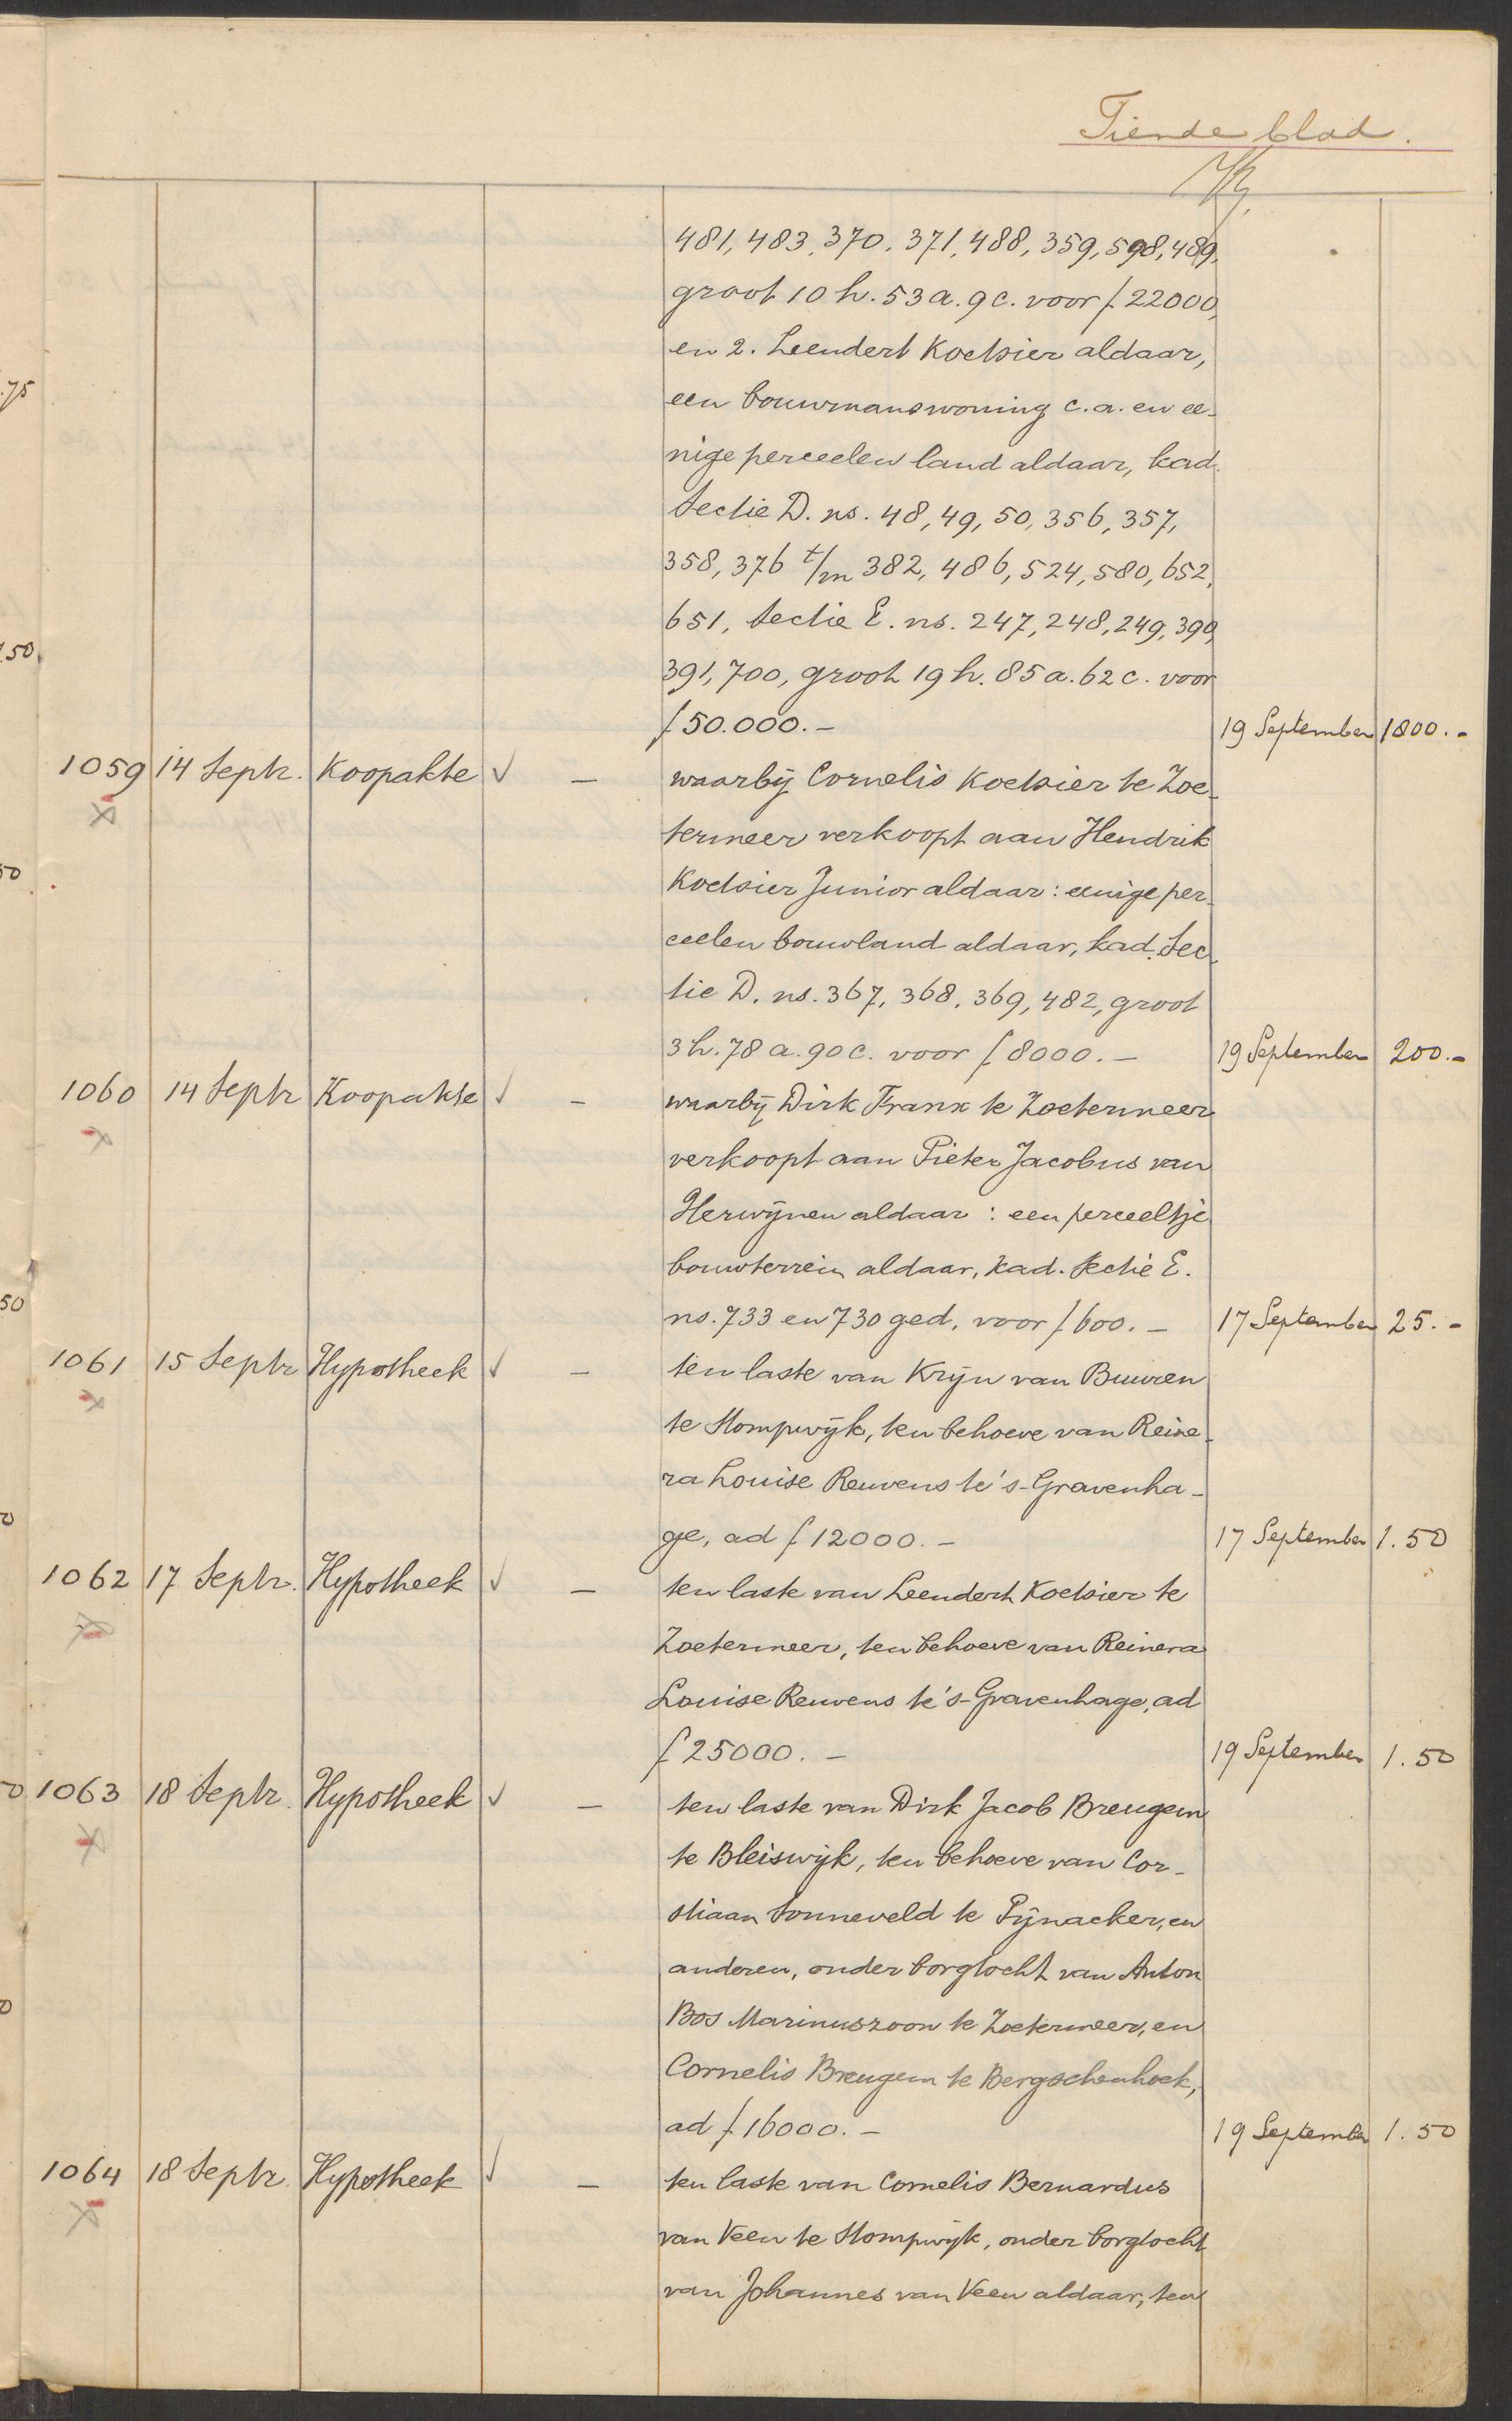 Tiende blad.
481, 483, 370, 371, 488, 359, 598, 489,
groot 10 h. 53 a. 9 c. voor f 22000,
en 2. Leendert Koetsier aldaar,
een bouwmanswoning c.a. en ee-
nige perceelen land aldaar, kad.
sectie D. ns. 48, 49, 50, 356, 357,
358, 376 t/m 382, 486, 524, 580, 652,
651, sectie E. ns. 247, 248, 249, 390,
391, 700, groot 19 h. 85 a. 62 c. voor
f 50.000.- 19 September 1800.-
1059 14 Septr. Koopakte √ — waarbij Cornelis Koetsier te Zoe-
termeer verkoopt aan Hendrik
Koetsier Junior aldaar: eenige per-
ceelen bouwland aldaar, kad. sec-
tie D. ns. 367, 368, 369, 482, groot
3 h. 78 a. 90 c. voor f 8000.- 19 September 200.-
1060 14 Septr Koopakte √ — waarbij Dirk Franx te Zoetermeer
verkoopt aan Pieter Jacobus van
Herwijnen aldaar: een perceeltje
bouwterrein aldaar, kad. sectie E.
ns. 733 en 730 ged. voor f 600.- 17 September 25.-
1061 15 Septr Hypotheek √ — ten laste van Krijn van Buuren
te Stompwijk, ten behoeve van Reine-
ra Louise Reuvens te 's-Gravenha-
ge, ad f 12000.- 17 September 1.50
1062 17 Septr. Hypotheek √ — ten laste van Leendert Koetsier te
Zoetermeer, ten behoeve van Reinera
Louise Reuvens te 's-Gravenhage, ad
f 25000.- 19 September 1.50
1063 18 Septr. Hypotheek √ — ten laste van Dirk Jacob Breugem
te Bleiswijk, ten behoeve van Cor-
stiaan Sonneveld te Pijnacker, en
anderen, onder borgtocht van Anton
Bos Marinuszoon te Zoetermeer, en
Cornelis Breugem te Bergschenhoek,
ad f 16000.- 19 September 1.50
1064 18 Septr. Hypotheek √ — ten laste van Cornelis Bernardus
van Veen te Stompwijk, onder borgtocht
van Johannes van Veen aldaar, ten